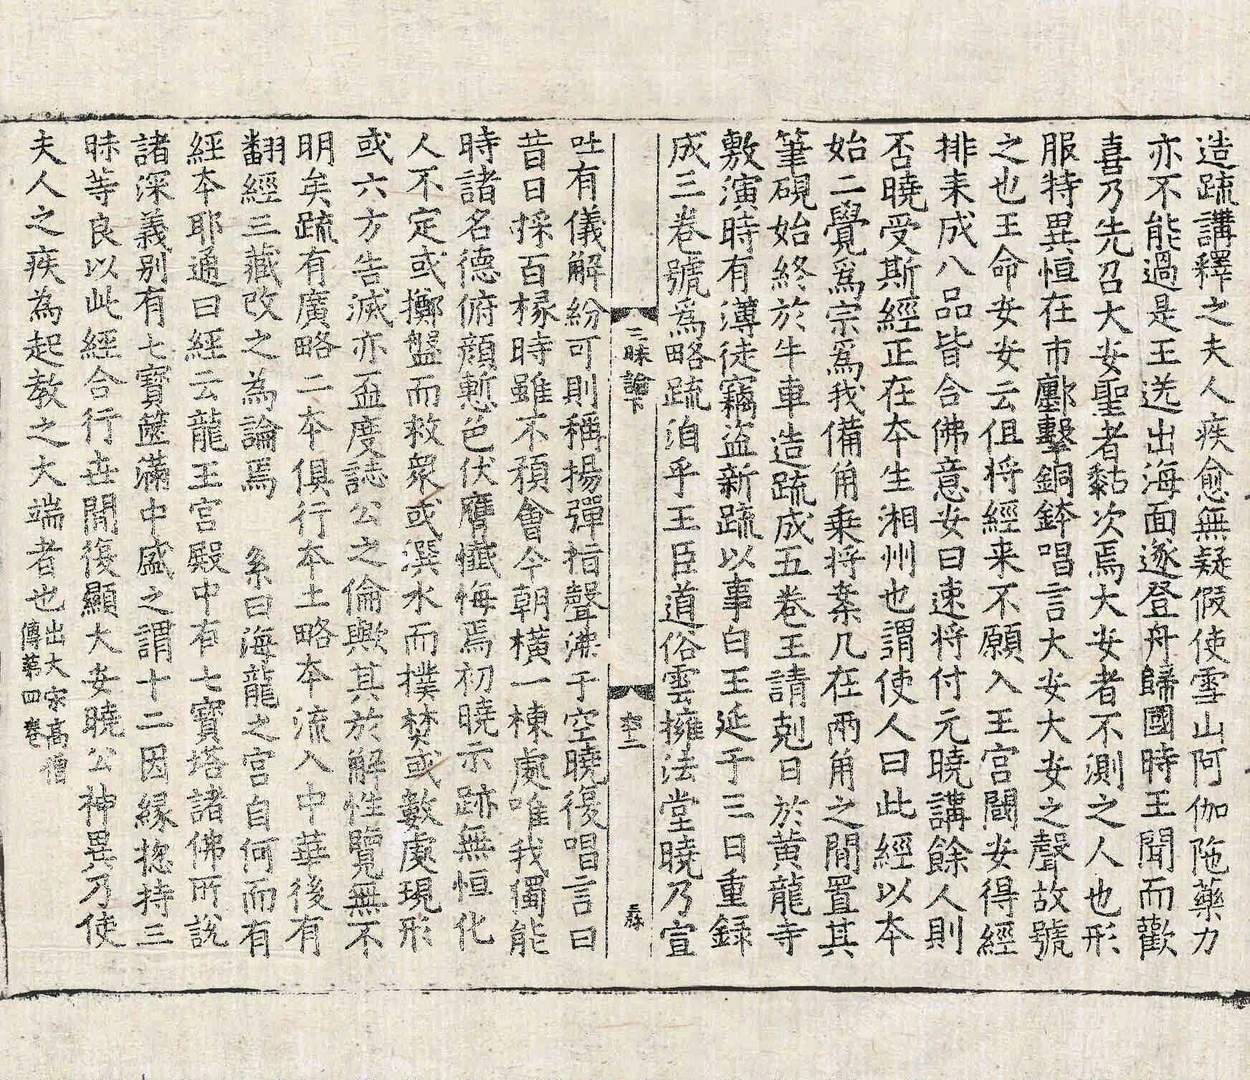 造疏講釋之夫人疾愈無疑假使雪山阿伽陁藥力
亦不能過是王送出海面遂登舟歸國時王聞而歡
喜乃先召大安聖者黏次焉大安者不測之人也形
服特異恒在市鄽擊銅鉢唱言大安大安之聲故號
之也王命安安云但将經来不願入王宮閾安得經
排来成八品皆合佛意安曰速将付元曉講餘人則
否曉受斯經正在本生湘州也謂使人曰此經以本
始二覺爲宗爲我備角乗将案几在兩角之間置其
筆硯始終於牛車造疏成五卷王請剋日於黄龍寺
敷演時有薄徒竊盗新疏以事白王延于三日重録
成三卷號爲略疏洎乎王臣道俗雲擁法堂曉乃宣
三昧論下
吐有儀解紛可則稱揚彈指聲沸于空曉復唱言曰
昔日採百椽時雖不預會今朝橫一棟處唯我獨能
時諸名德俯顔慙色伏膺懺悔焉初曉示跡無恒化
人不定或擲盤而救衆或潠水而撲焚或數處現形
或六方告滅亦盃度誌公之倫歟其於解性覽無不
明矣疏有廣略二本俱行本土略本流入中華後有
翻經三藏改之為論焉 系曰海龍之宮自何而有
經本耶通曰經云龍王宮殿中有七寳塔諸佛所說
諸深義別有七寳篋滿中盛之謂十二因緣揔持三
昧等良以此經合行世間復顯大安曉公神異乃使
夫人之疾為起教之大端者也出大宋高僧
傳第四卷